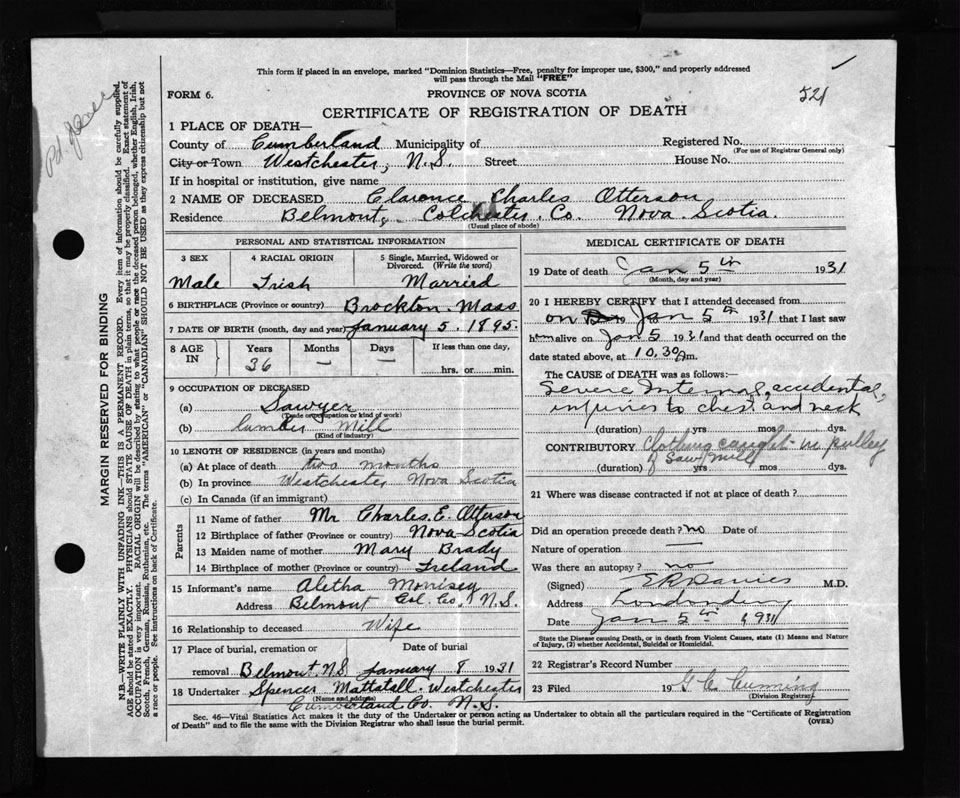 This form if placed in an envelope, marked "Dominion Statistics—Free, penalty for improper use, $300," and properly addressed
will pass through the Mail "FREE"
FORM 6.
PROVINCE OF NOVA SCOTIA
521
CERTIFICATE OF REGISTRATION OF DEATH
1 PLACE OF DEATH—
County of Cumberland Municipality of Registered No.
(For use of Registrar General only)
City or Town Westchester, N.S. Street House No.
If in hospital or institution, give name
2 NAME OF DECEASED Clarence Charles Otterson
Residence Belmont, Colchester Co. Nova Scotia.
(Usual place of abode)
PERSONAL AND STATISTICAL INFORMATION
3 SEX 4 RACIAL ORIGIN 5 Single, Married, Widowed or Divorced. (Write the word)
Male Irish Married
6 BIRTHPLACE (Province or country) Brockton. Mass
7 DATE OF BIRTH (month, day and year) January 5. 1895.
8 AGE IN Years Months Days If less than one day,
36 — — hrs. or min.
9 OCCUPATION OF DECEASED
(a) Sawyer
(Trade occupation or kind of work)
(b) lumber Mill
(Kind of industry)
10 LENGTH OF RESIDENCE (in years and months)
(a) At place of death two months
(b) In province Westchester Nova Scotia
(c) In Canada (if an immigrant)
Parents
11 Name of father Mr Charles. E. Otterson
12 Birthplace of father (Province or country) Nova Scotia
13 Maiden name of mother Mary Brady
14 Birthplace of mother (Province or country) Ireland
15 Informant's name Aletha Morrisey
Address Belmont Col. Co. N.S.
16 Relationship to deceased Wife
17 Place of burial, cremation or Date of burial
removal Belmont. N.S January 8 1931
18 Undertaker Spencer Mattatall. Westchester
(Name and address)
Cumberland Co. N.S.
MEDICAL CERTIFICATE OF DEATH
19 Date of death Jan 5th 1931
(Month, day and year)
20 I HEREBY CERTIFY that I attended deceased from
on Jan 5th 1931 that I last saw
him alive on Jan 5 1931 and that death occurred on the
date stated above, at 10.30 m.
The CAUSE OF DEATH was as follows:
Severe Internal, accidental,
injuries to chest and neck
(duration) yrs mos. dys.
CONTRIBUTORY Clothing caught in pulley
of Saw Mill
(duration) yrs mos dys.
21 Where was disease contracted if not at place of death?
Did an operation precede death? no Date of
Nature of operation —
Was there an autopsy? no
(Signed) E R Davies M.D.
Address Londonderry
Date Jan 5th 1931
State the Disease causing Death, or in death from Violent Causes, state (1) Means and Nature
of Injury, (2) whether Accidental, Suicidal or Homicidal.
22 Registrar's Record Number
23 Filed 19 Cumming
(Division Registrar)
Sec. 46—Vital Statistics Act makes it the duty of the Undertaker or person acting as Undertaker to obtain all the particulars required in the "Certificate of Registration
of Death" and to file the same with the Division Registrar who shall issue the burial permit.
(OVER)
MARGIN RESERVED FOR BINDING
N.B.—WRITE PLAINLY WITH UNFADING INK—THIS IS A PERMANENT RECORD. Every item of information should be carefully supplied.
AGE should be stated EXACTLY. PHYSICIANS should STATE CAUSE OF DEATH in plain terms, so that it may be properly classified. Exact statement of
OCCUPATION is very important. RACIAL ORIGIN will be described by stating to what people or race the deceased person belonged, whether English, Irish,
Scotch, French, German, Russian, Ruthenian, etc. The terms "AMERICAN" or "CANADIAN" SHOULD NOT BE USED as they express citizenship but not
a race or people. See instructions on back of Certificate.